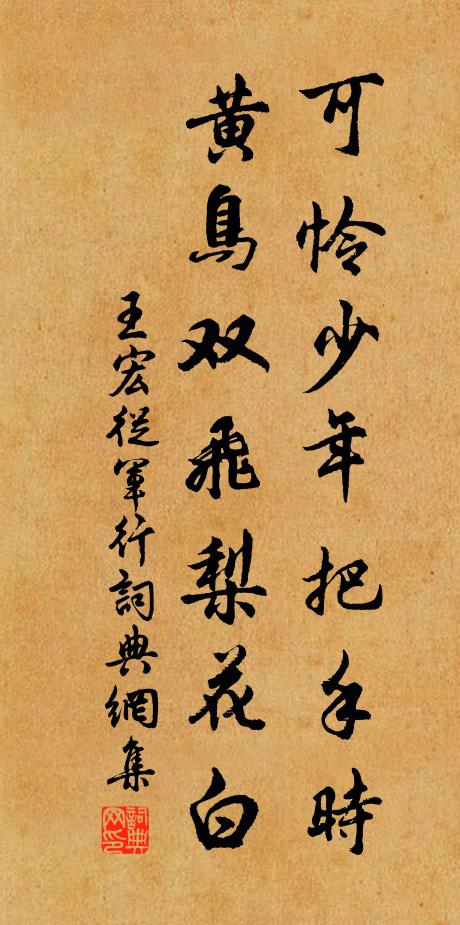 可怜少年把手时
黄鸟双飞梨花白
王宏從軍行詞典網集
詞典网印